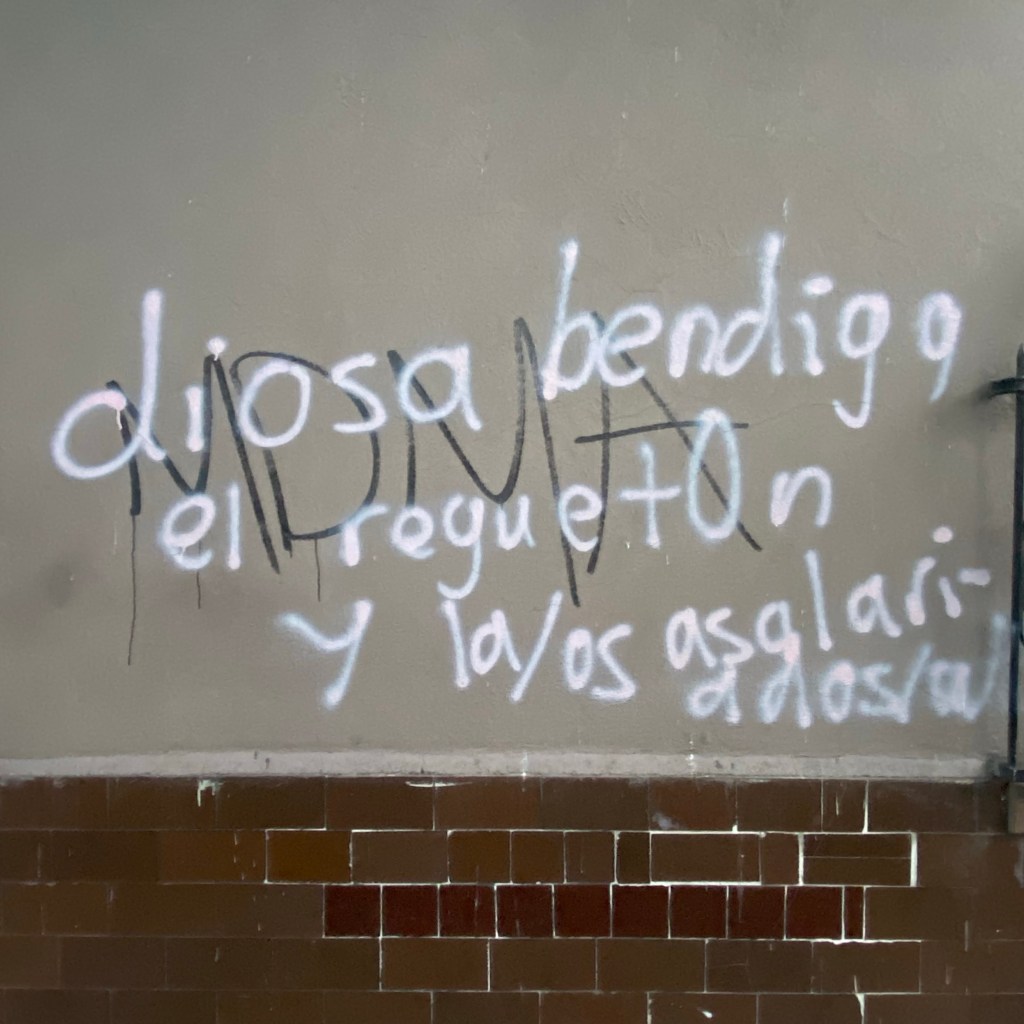 diosa bendiga
el reguetón
y la/os asalari-
ados/a
MDMA